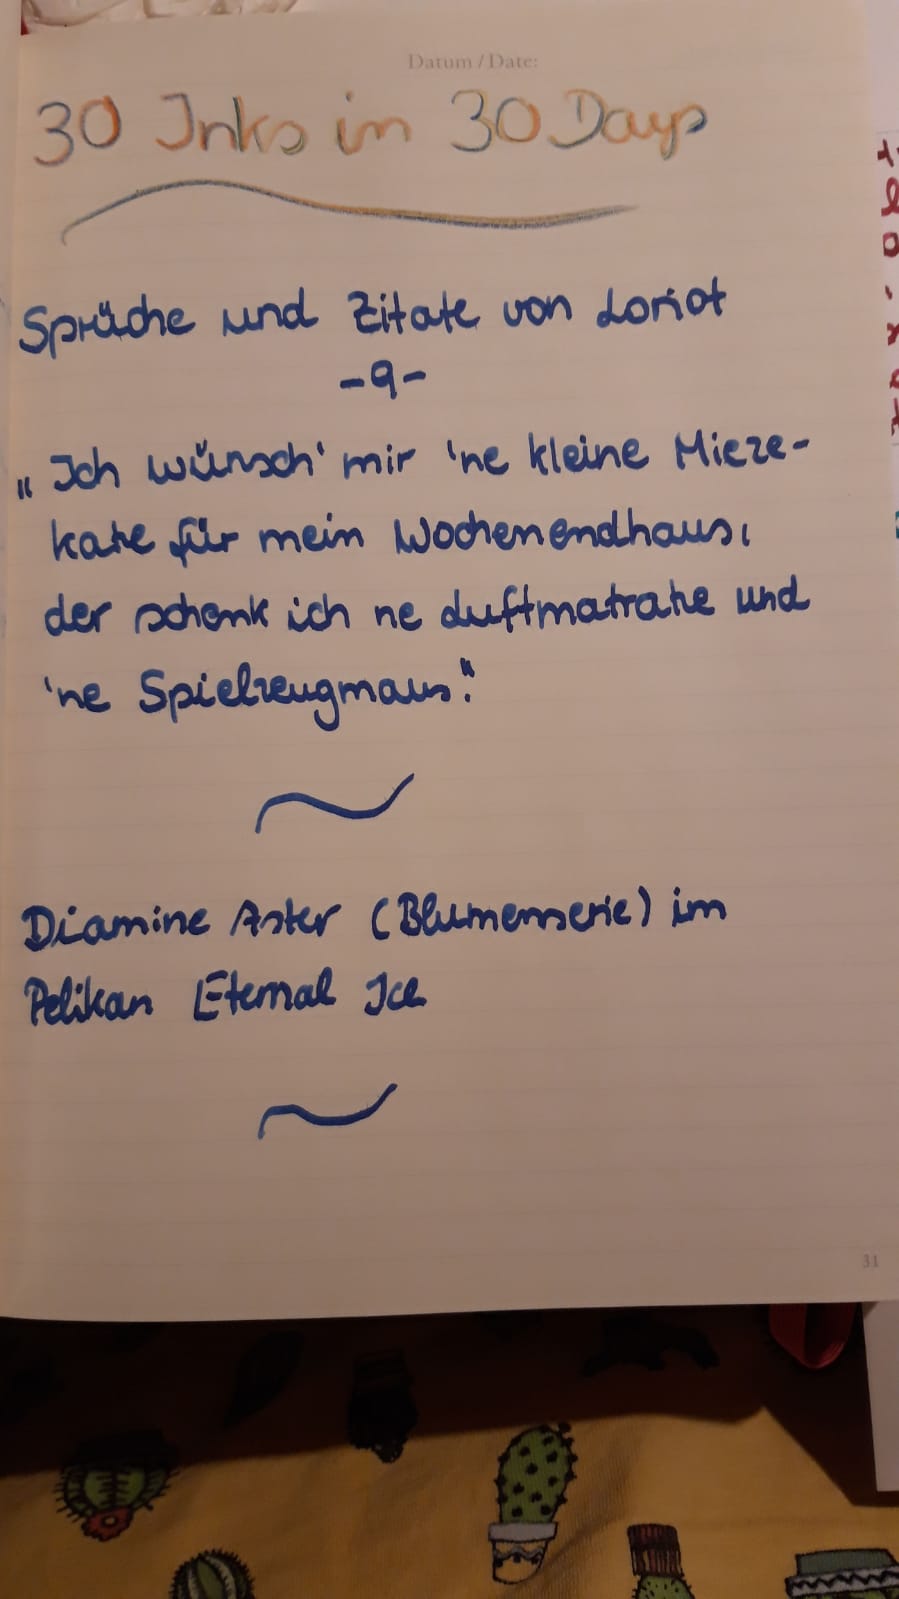 Datum / Date:
30 Inks in 30 Days
Sprüche und Zitate von Loriot
-9-
„Ich wünsch' mir 'ne kleine Mieze-
katze für mein Wochenendhaus,
der schenk ich ne duftmatratze und
'ne Spielzeugmaus."
Diamine Aster (Blumenserie) im
Pelikan Eternal Ice
31